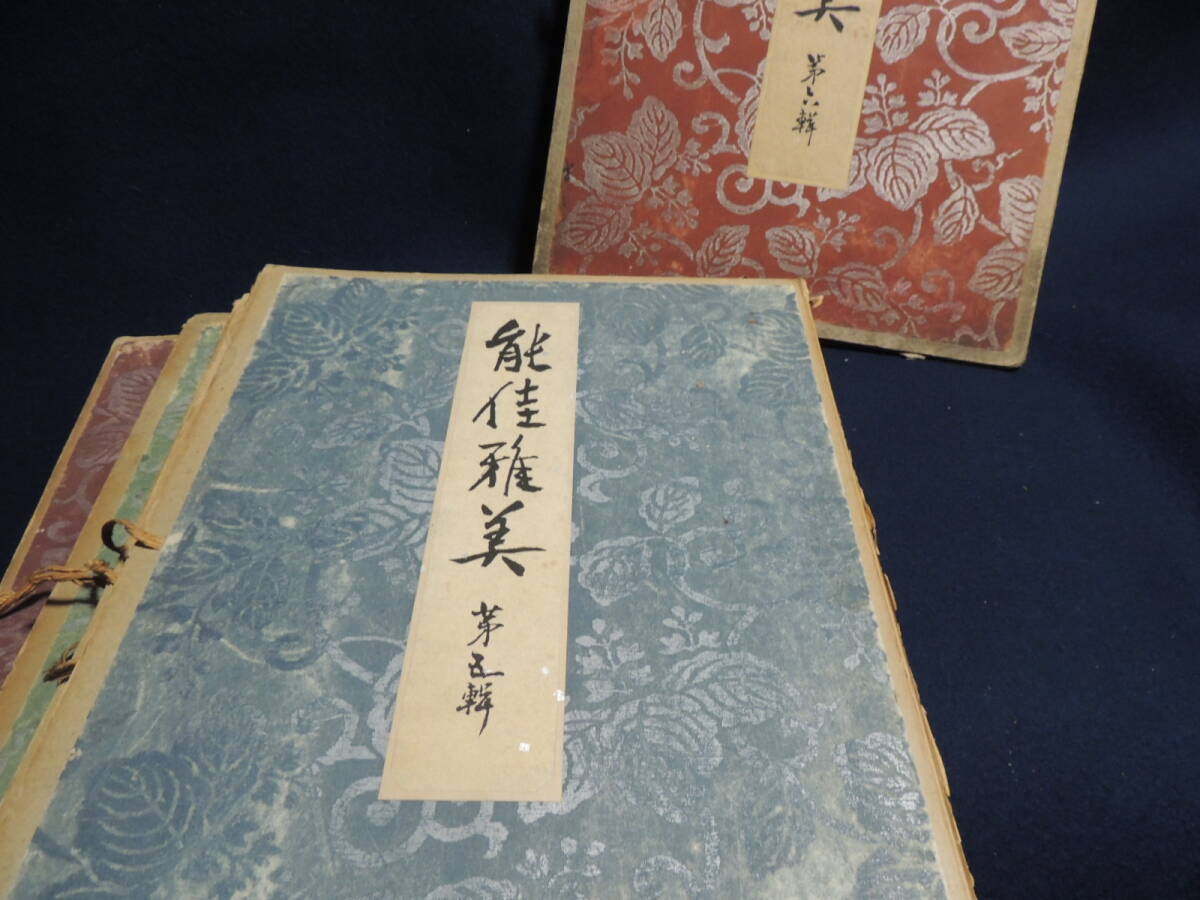 美
第六輯
能佳雅美
第五輯